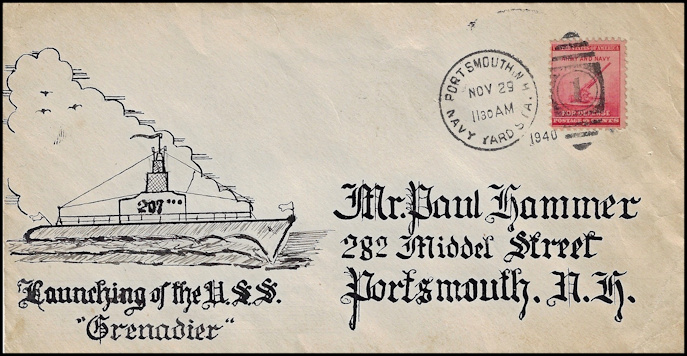 PORTSMOUTH, N.H.
NOV 29
1130 AM
1940
NAVY YARD STA.
UNITED STATES OF AMERICA
ARMY AND NAVY
FOR DEFENSE
POSTAGE 2 CENTS
207
Launching of the U.S.S.
"Grenadier"
Mr. Paul Hammer
282 Middel Street
Portsmouth. N.H.